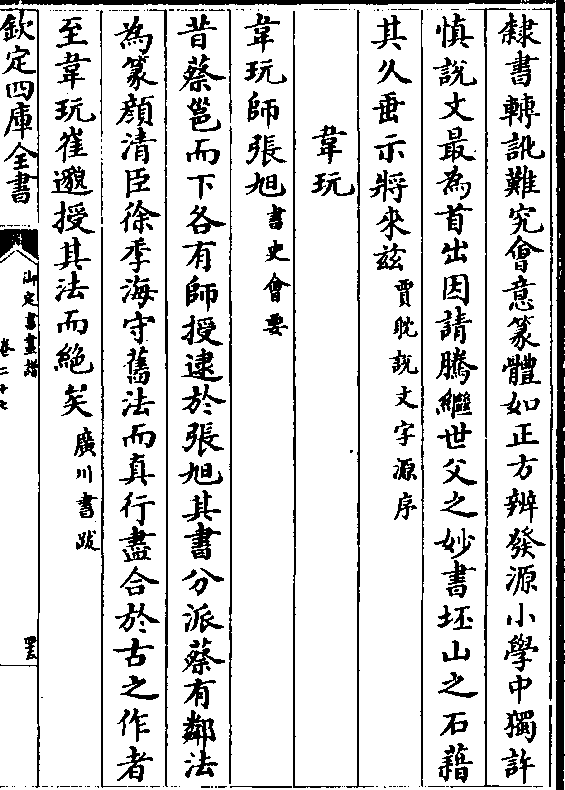 隸書轉訛難究會意篆體如正方辨發源小學中獨許
慎說文最為首出因請騰繼世父之妙書坯山之石藉
其久垂示將來兹賈耽說文字源序
韋玩
韋玩師張旭書史會要
昔蔡邕而下各有師授逮於張旭其書分派蔡有鄰法
為篆顔清臣徐季海守舊法而真行盡合於古之作者
至韋玩崔邈授其法而絶矣廣川書跋
欽定四庫全書
御定書畫譜
卷二十七